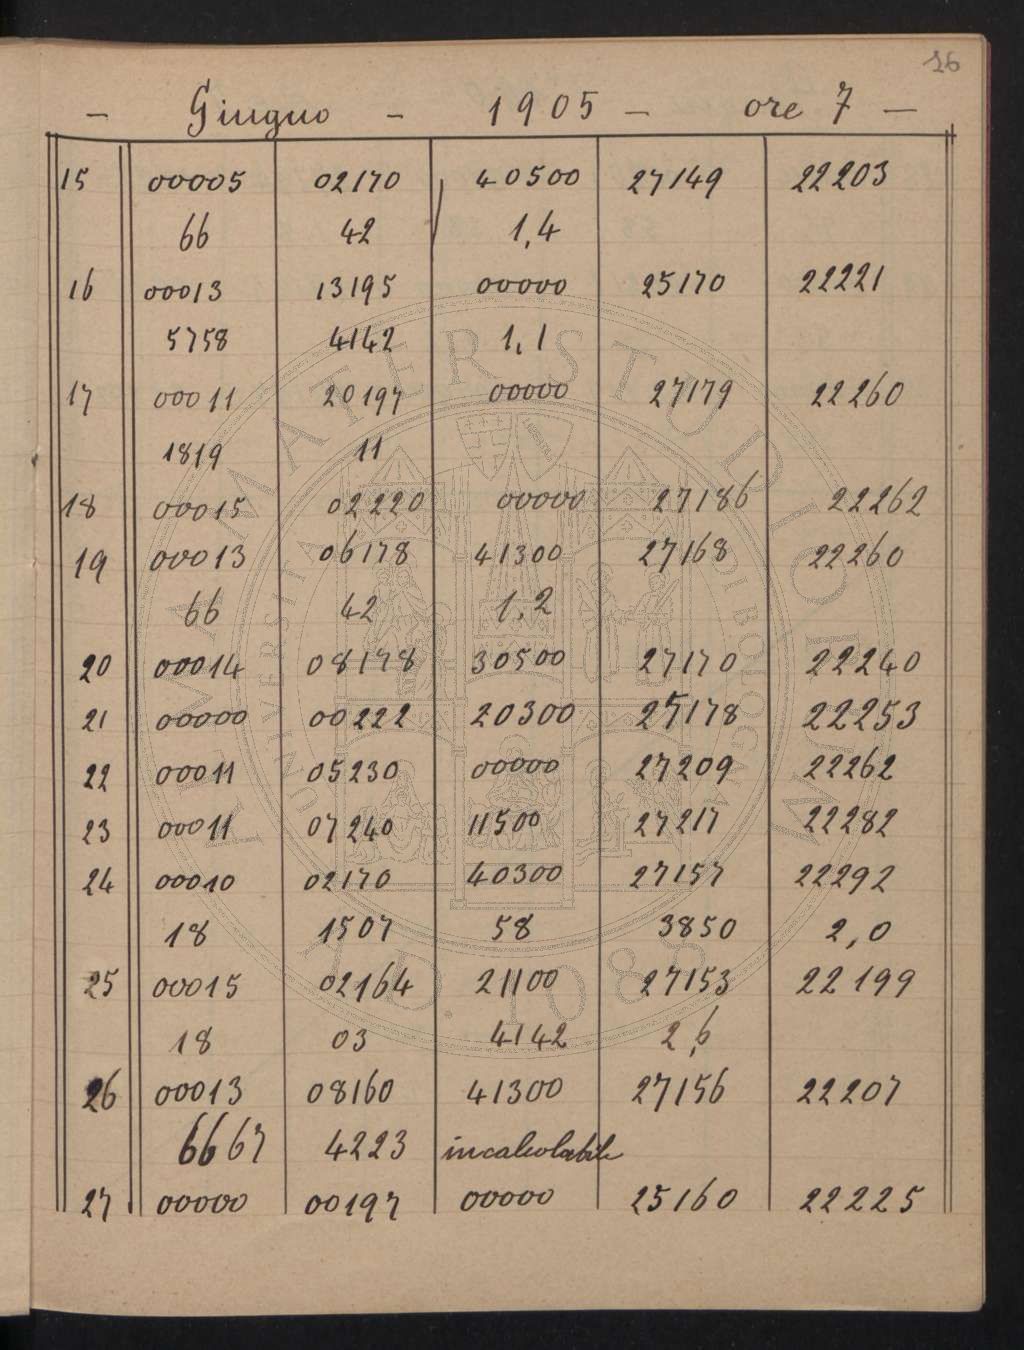 26
- Giugno - 1905 - ore 7 -
15 00005 02170 40500 27149 22203
66 42 1,4
16 00013 13195 00000 25170 22221
5758 4142 1,1
17 00011 20197 00000 27179 22260
1819 11
18 00015 02220 00000 27186 22262
19 00013 06178 41300 27168 22260
66 42 1,2
20 00014 08178 30500 27170 22240
21 00000 00222 20300 25178 22253
22 00011 05230 00000 27209 22262
23 00011 07240 11500 27217 22282
24 00010 02170 40300 27157 22292
18 1507 58 3850 2,0
25 00015 02164 21100 27153 22199
18 03 4142 2,6
26 00013 08160 41300 27156 22207
6667 4223 incalcolabile
27 00000 00197 00000 25160 22225
ALMA MATER STUDIORUM
UNIVERSITA DI BOLOGNA
A.D. 1088